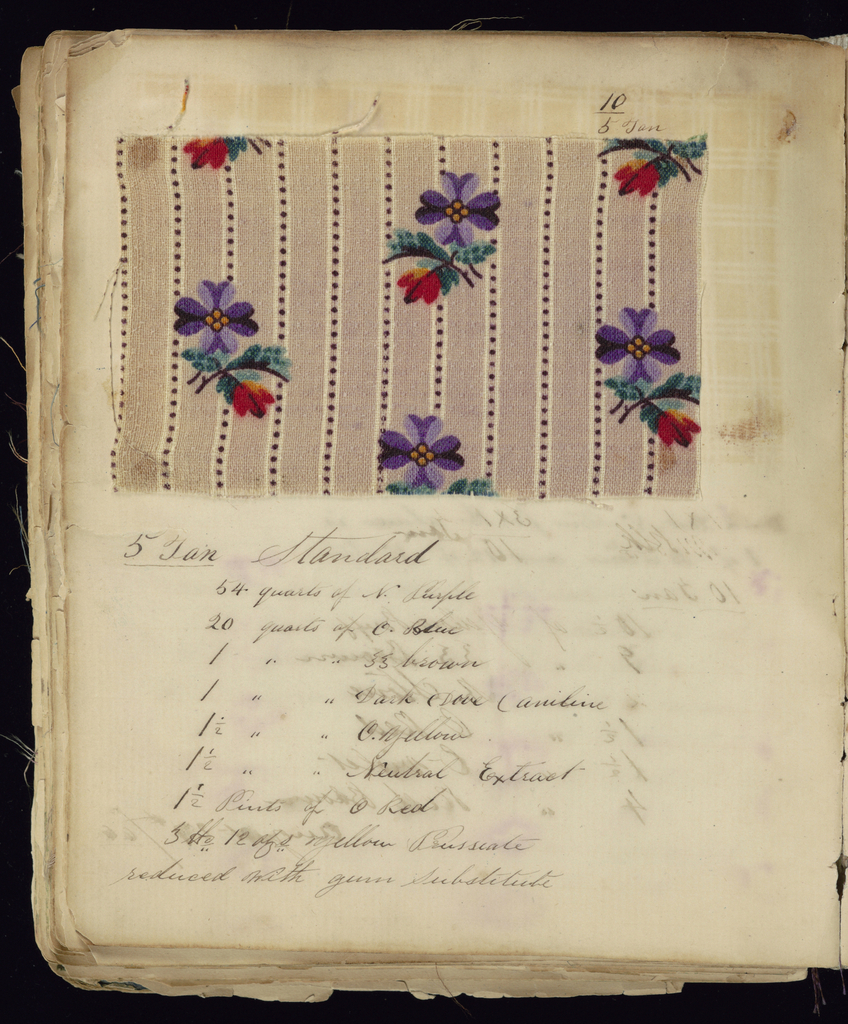 10
5 Tan
5 Tan Standard
54 quarts of N. Purple
20 quarts of O. Blue
1 " " 33 brown
1 " " Dark Dove (aniline
1 1/2 " " O. Yellow
1 1/2 " " Neutral Extract
1 1/2 Pints of O Red
3 lbs 12 ozs Yellow Prussiate
reduced with gum substitute